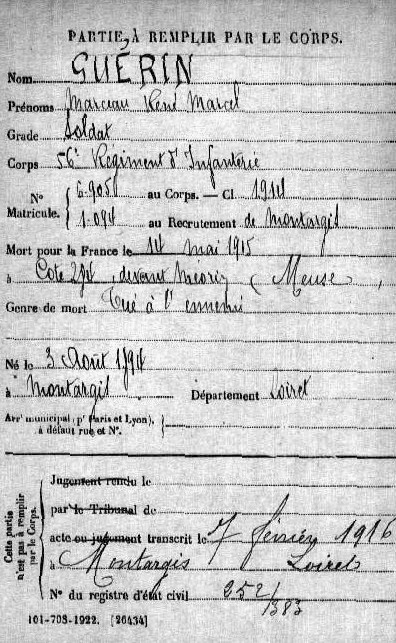 PARTIE À REMPLIR PAR LE CORPS.
Nom GUÉRIN
Prénoms Marceau René Marcel
Grade Soldat
Corps 56e Régiment d'Infanterie
N° Matricule. { 6.905 au Corps. — Cl. 1914
1.094 au Recrutement de Montargis
Mort pour la France le 14 mai 1915
à Cote 294, devant (Meuse)
Genre de mort Tué à l'ennemi
Né le 3 Août 1894
à Montargis Département Loiret
Arrt municipal (pr Paris et Lyon), à défaut rue et N°. {
Cette partie n'est pas à remplir par le Corps.
Jugement rendu le
par le Tribunal de
acte ou jugement transcrit le 7 février 1916
à Montargis Loiret
N° du registre d'état civil 252/1383
101-708-1922. [26434]